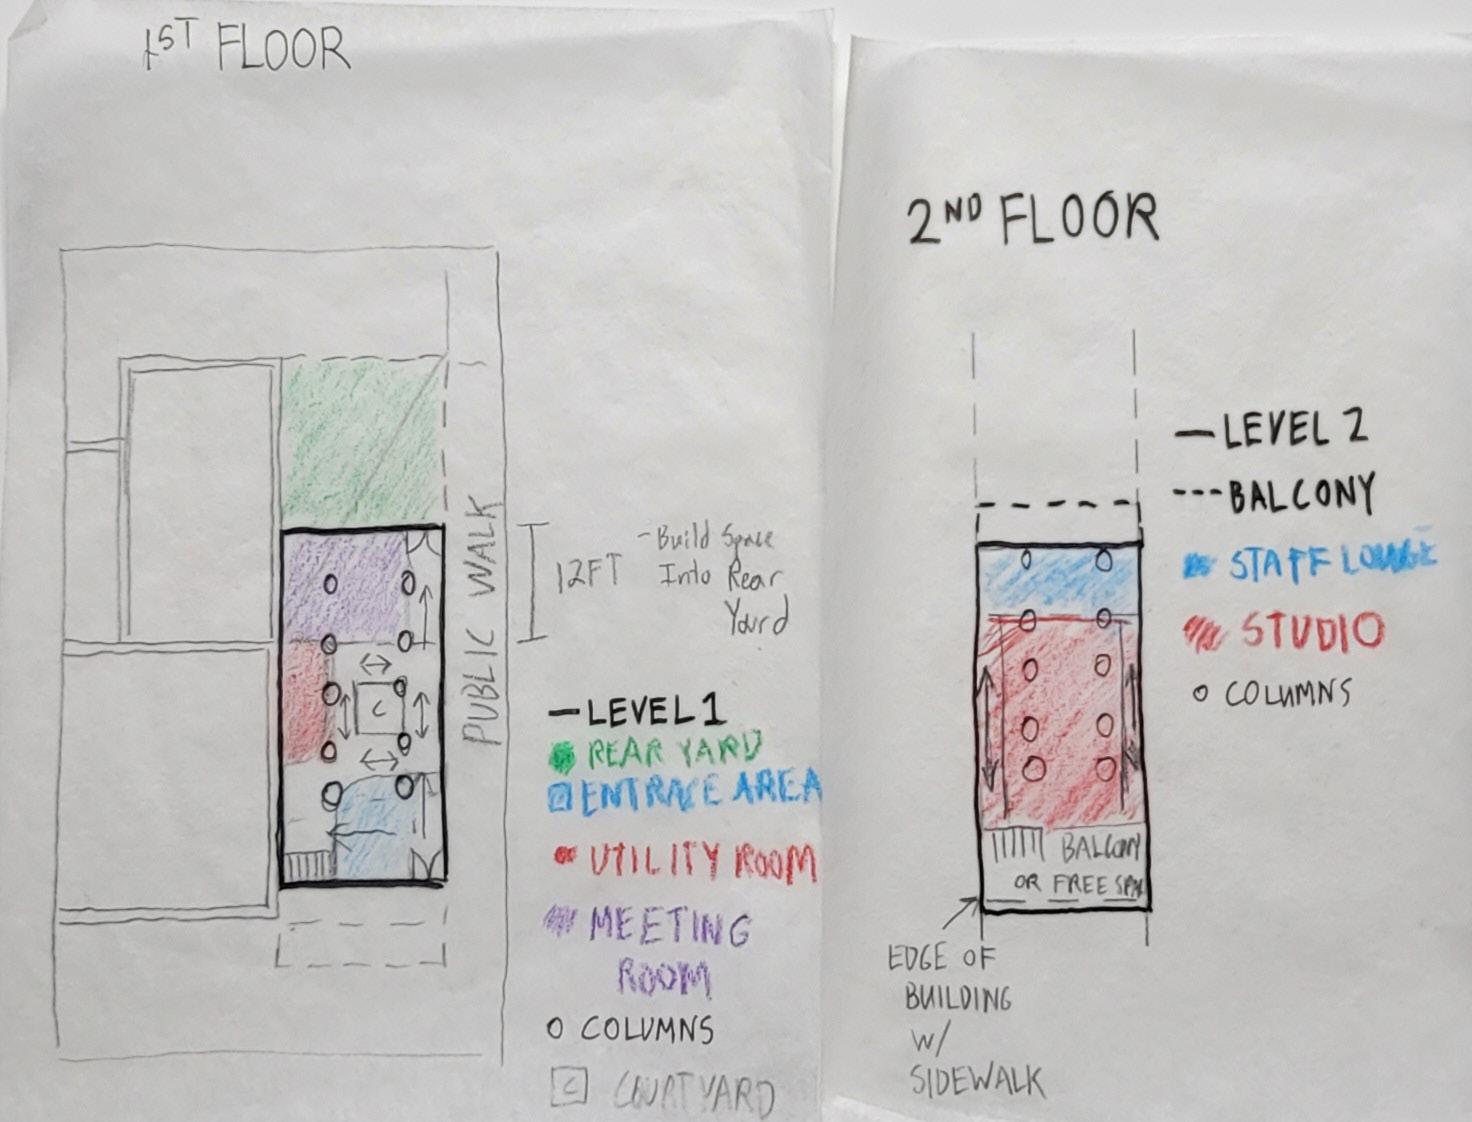 1ST FLOOR
PUBLIC WALK
12FT
- Build Space
Into Rear
Yard
C
— LEVEL 1
REAR YARD
ENTRACE AREA
UTILITY ROOM
MEETING
ROOM
O COLUMNS
C COURTYARD
2ND FLOOR
— LEVEL 2
--- BALCONY
STAFF LOUNGE
STUDIO
O COLUMNS
BALCONY
OR FREE SPAC
EDGE OF
BUILDING
W/
SIDEWALK